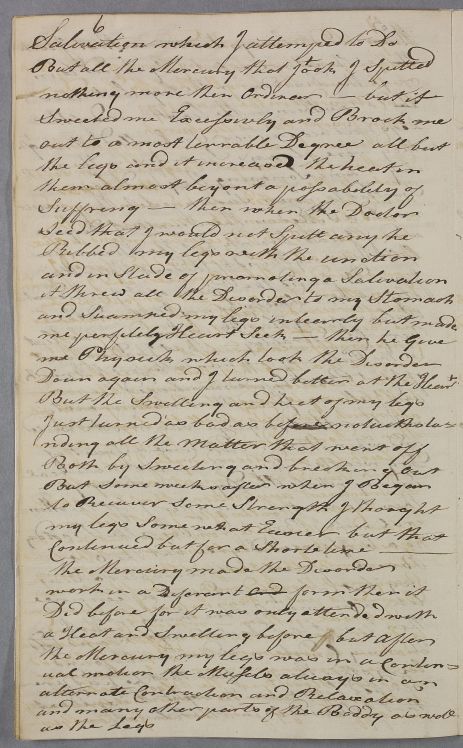 6
Salivation which I attemped to Do
But all the Mercury that I took I Spitted
nothing more then Ordiner — but it
Sweeted me Excessively and Brock me
out to a most terrable Degree all but
the legs and it increaced the heat in
them almost beyont a possabelity of
Suffring — then when the Doctor
Seed that I would not Spitt any he
Rubbed my legs with the unction
and in Stade of promoting a Salivation
it threw all the Disorder to my Stomach
and Swamked my legs intearly but made
me perfitely Heart Seek — then he Give
me Physick which took the Disorder
Down again and I turned better at the Heart
But the Swelling and heet of my legs
Just turned as bad as before notwithsta=
nding all the Matter that went off
Both by Sweeting and breaking out
But Some weeks after when I Began
to Recover Some Strength I thought
my legs Somewhat Easier but that
Continued but for a Shorte time —
the Mercury made the Disorder
work in a Diferant form then it
Did before for it was only attended with
a Heat and Swelling before but after
the Mercury my legs was in a Contin=
ual motion the Musels always in an
alternate Contraction and Relaxation
and many other parts of the Boddy as well
as the Legs